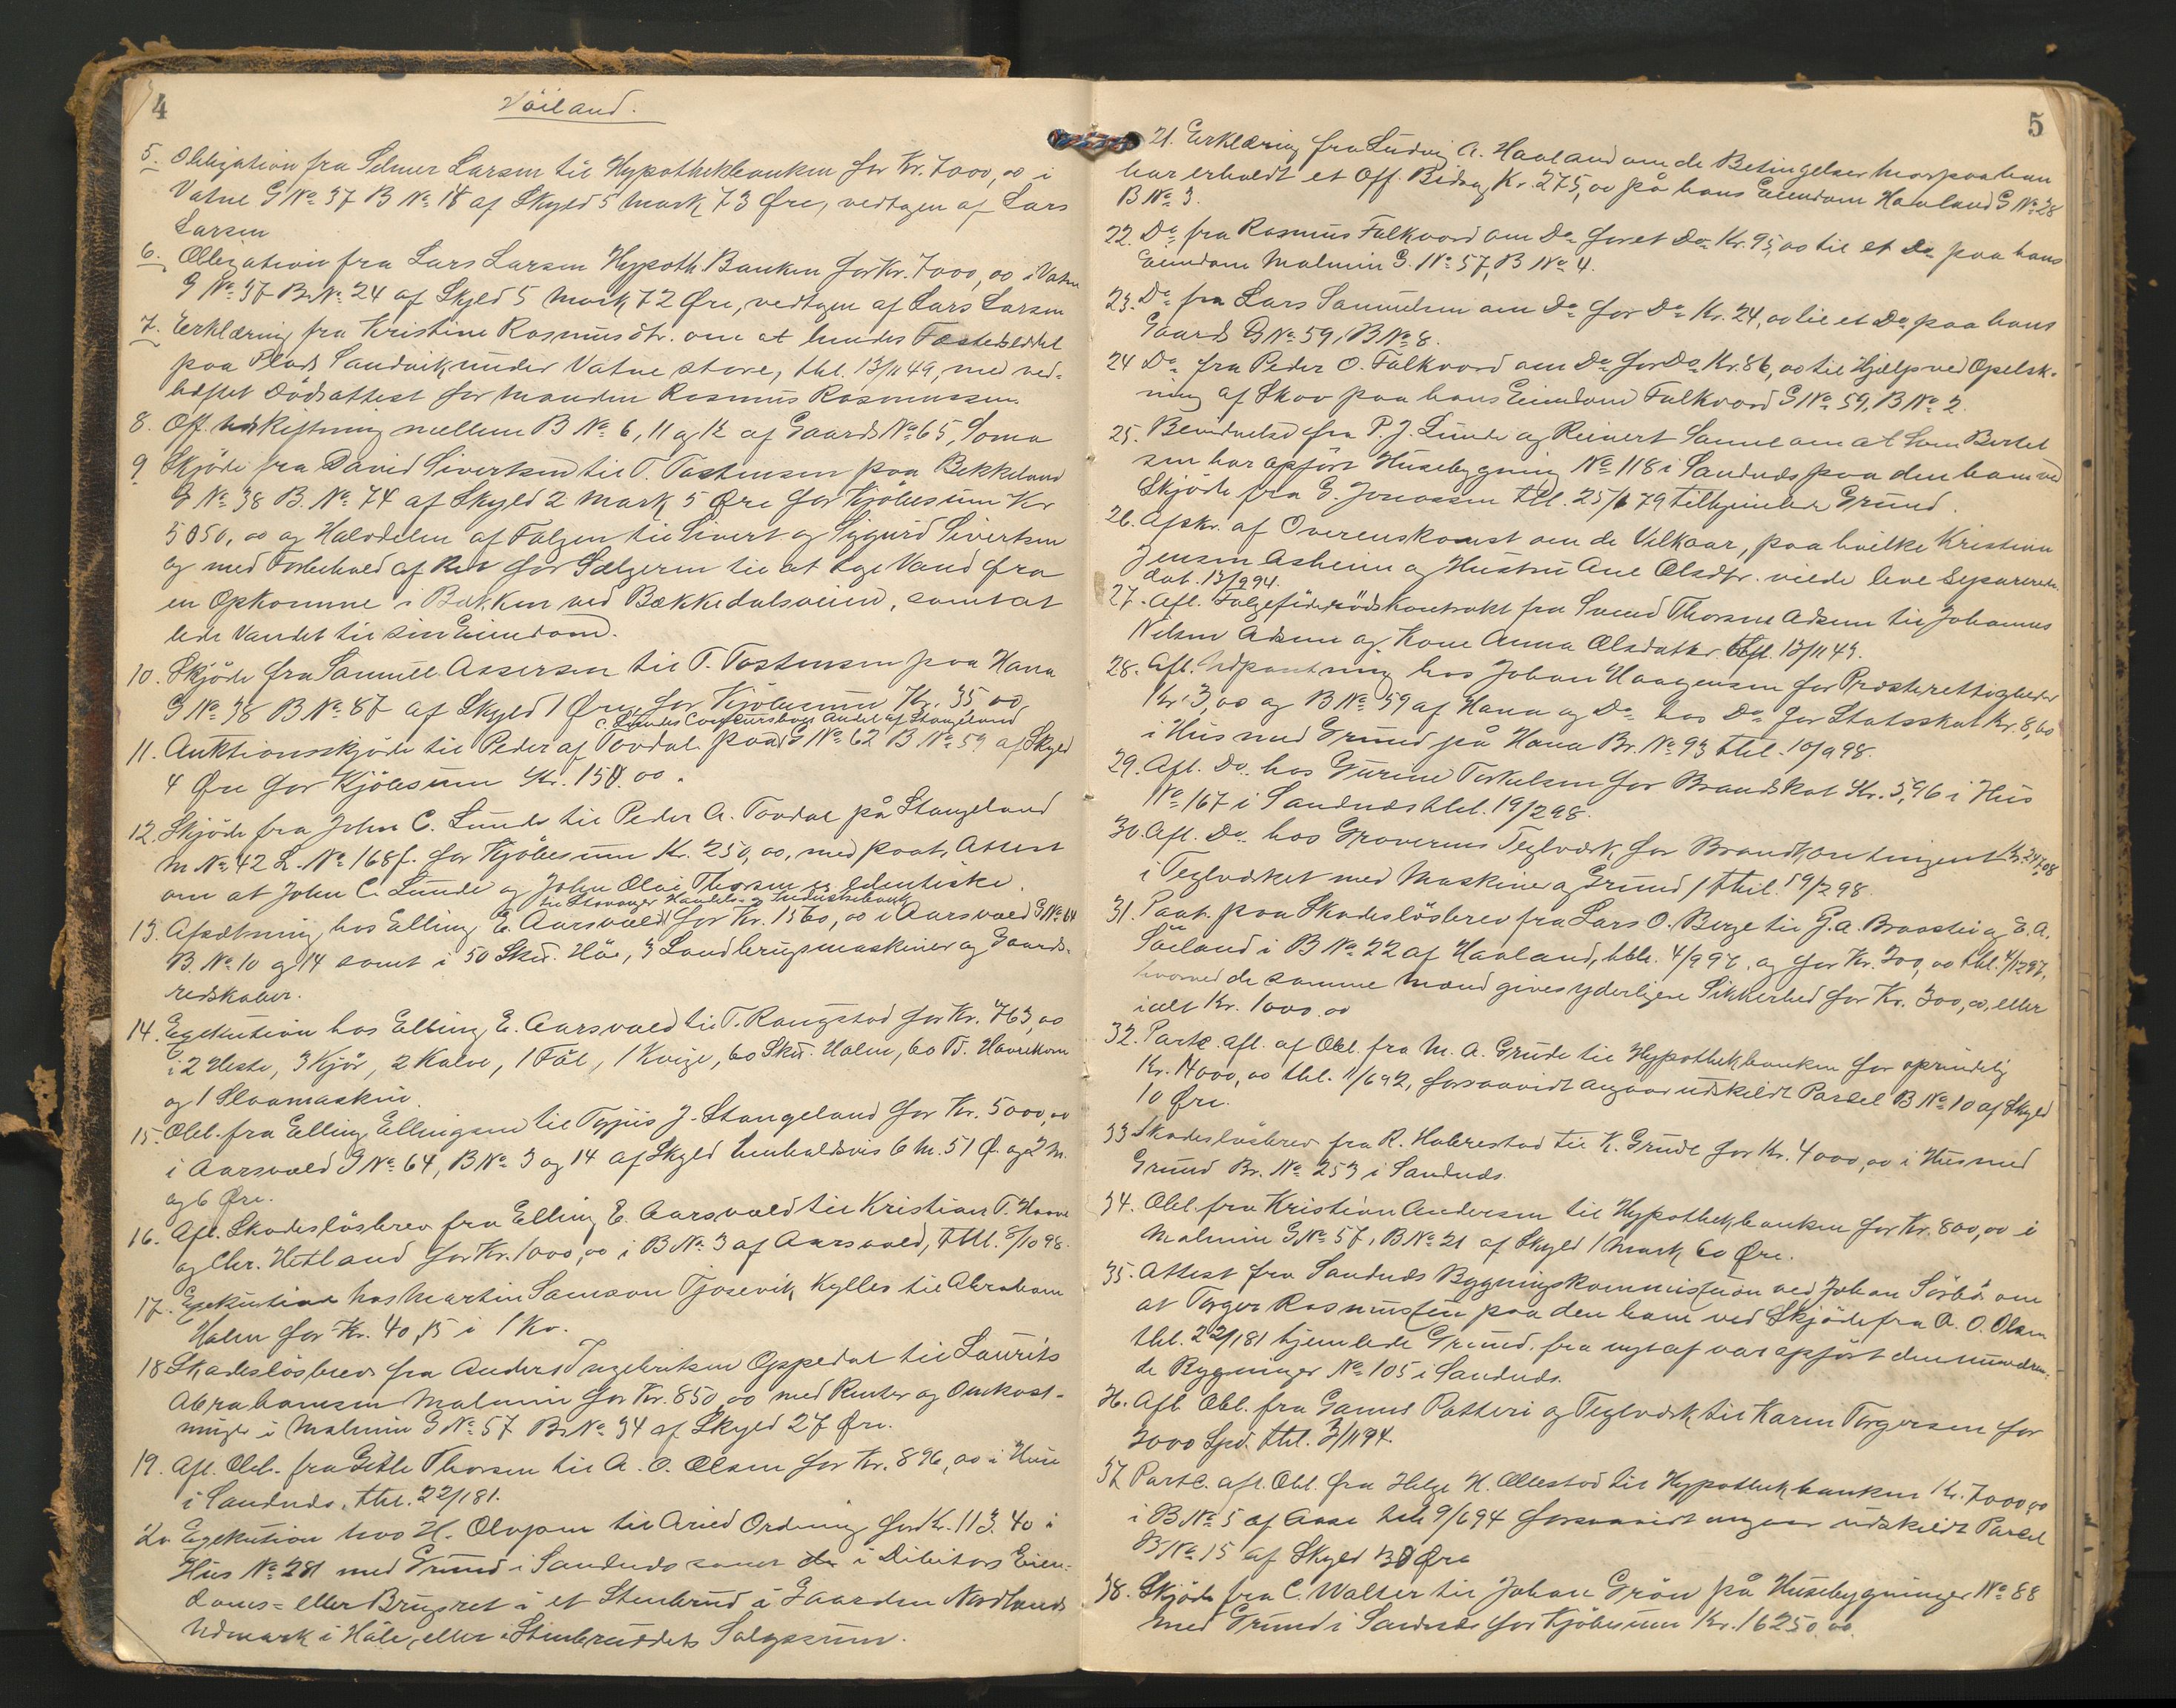 4
Vöiland.
5. Obligation fra Selmer Larsen til Hypothekbanken for Kr. 7000,00 i
Vatne G No. 37 B No. 18 af Skyld 5 Mark 73 Øre, vedtagen af Lars
Larsen
6. Obligation fra Lars Larsen Hypoth. Banken for Kr. 7000,00 i Vatne
G No. 37 B. No. 24 af Skyld 5 Mark 72 Øre, vedtagen af Lars Larsen
7. Erklæring fra Kristine Rasmusdtr. om at hendes Fæsteseddel
paa Plads Sandvik under Vatne store, thl. 13/11 49, med ved-
hæftet Dødsattest for Manden Rasmus Rasmussen.
8. Off. Udskiftning mellem B No. 6, 11 og 12 af Gaards No. 65, Soma
9 Skjöde fra David Sivertsen til T. Tostensen paa Bekkeland
G No. 38 B. No. 74 af Skyld 2 Mark 5 Øre for Kjöbesum Kr
5050,00 og Halvdelen af Folgen til Sivert og Sigurd Sivertsen
og med Forbehold af Ret for Sælgeren til at tage Vand fra
en Opkomme i Bakken ved Bækkedalsveien, samt at
lede Vandet til sin Eiendom.
10. Skjöde fra Samuel Assersen til T. Tostensen paa Hana
G No. 38 B No. 87 af Skyld 1 Øre for Kjöbesum Kr. 35,00
C. Lundes Concursbos Andel af Stangeland
11. Auktionsskjöde til Peder af Tovdal paa G No. 62 B No. 59 af Skyld
4 Øre for Kjöbesum Kr. 150.00.
12. Skjöde fra John C. Lunde til Peder A. Tovdal på Stangeland
M No. 42 L. No. 168f. for Kjöbesum Kr. 250,00, med paat. Attest
om at John C. Lunde og John Olai Thorsen er identiske.
til Stavanger Handels- og Industribank
13. Afsætning hos Elling E. Aarsvold for Kr. 1560,00 i Aarsvold G No. 64
B. No. 10 og 14 samt i 50 Skü. Höe, 3 Landbrugsmaskiner og Gaards-
redskaber.
14. Exekution hos Elling E. Aarsvold til T. Rangstad for Kr. 763,00
i 2 Heste, 3 Kjör, 2 Kalve, 1 Föl, 1 Kvige, 60 Skü. Halm, 60 Td. Havrekorn
og 1 Slaamaskin.
15. Obl. fra Elling Ellingsen til Tönis J. Stangeland for Kr. 5000,00
i Aarsvold G No. 64, B No. 3 og 14 af Skyld henholdsvis 6 M. 51 Ø. og 2 M.
og 6 Øre.
16. Afl. Skadeslösbrev fra Elling E. Aarsvold til Kristian T. Haave
og Chr. Hetland for Kr. 1000,00 i B No. 3 af Aarsvold, thl. 8/10 98.
17. Exekution hos Martin Samson Tjosevik Kylles til Abraham
Holm for Kr. 40,15 i 1 Ko.
18 Skadeslösbrev fra Anders Ingebrigtsen Oppedal til Laurits
Abrahamsen Malmin for Kr. 850,00 med Renter og Omkost-
ninger i Malmin G No. 57 B. No. 34 af Skyld 27 Øre.
19. Afl. Obl. fra Gitle Thorsen til A. O. Olsen for Kr. 896,00 i Hus
i Sandnds. thl. 22/1 81.
20 Exekution hos H. Olvjom til Arild Ordning for Kr. 113.40 i
Hus No. 281 med Grund i Sandnds samt i Debitors Eien-
doms= eller Brugsret i et Stenbrud i Gaarden Nordlands
Udmark i Hole, eller i Stenbruddets Salgssum.
5
21. Erklæring fra Ludvig A. Haaland om de Betingelser hvorpaa han
har erholdt et Off. Bidrag Kr. 275,00 på hans Eiendom Haaland G No. 28
B No. 3.
22. Do. fra Rasmus Folkvord om Do. for et Do. Kr. 95,00 til et Do. paa hans
Eiendom Malmin G. No. 57, B No. 4.
23. Do. fra Lars Samuelsen om Do. for Do. Kr. 24,00 til et Do. paa hans
Gaard G No. 59, B No. 8.
24 Do. fra Peder O. Folkvord om Do. for Do. Kr. 86,00 til Hjælp ved Opelsk-
ning af Skov paa hans Eiendom Folkvord G No. 59, B No. 2.
25. Bevidnelse fra P. J. Lunde og Reinert Sanne om at Sven Bertel
sen har opfört Husebygning No. 118 i Sandnds paa den ham ved
Skjöde fra G. Jonassen thl. 25/6 79 tilhjemlede Grund.
26. Afskr. af Overenskomst om de Vilkaar, paa hvilke Kristian
Jensen Asheim og Hustru Ane Olsdtr. vilde leve separerede.
dat. 13/9 94.
27. Afl. Folgeföderaadskontrakt fra Svend Thorsen Adsen til Johannes
Nilsen Adsen og Kone Anna Olsdatter. thl. 13/11 49.
28. Afl. Udpantning hos Johan Haagensen for Presterettigheder
Kr. 3,00 og B No. 59 af Hana og Do. hos Do. for Statsskat Kr. 8,60
i Hus med Grund på Hana Br. No. 93 thl. 10/9 98.
29. Afl. Do. hos Gurine Torkelsen for Brandskat Kr. 5,96 i Hus
No. 167 i Sandnds thl. 19/2 98.
30. Afl. Do. hos Graverens Teglværk for Brandkontingent Kr. 247.08
i Teglværket med Maskiner og Grund, thl. 19/2 98.
31. Paat. paa Skadeslösbrev fra Lars O. Berge til G. A. Braastei og E. A.
Söiland i B No. 22 af Haaland, thl. 4/9 97. og for Kr. 700,00 thl. 4/12 97,
hvorved de samme Mænd gives yderligere Sikkerhed for Kr. 300,00, eller
ialt Kr. 1000.00
32. Partl. afl. af Obl. fra M. A. Grude til Hypothekbanken for oprindelig
Kr. 14000,00 thl. 11/6 92, forsaavidt angaar udskildt Parcel B No. 10 af Skyld
10 Øre.
33 Skadeslösbrev fra R. Haberstad til K. Grude for Kr. 4000,00 i Hus med
Grund Br. No. 253 i Sandnds.
34. Obl. fra Kristian Andersen til Hypothekbanken for Kr. 800,00 i
Malmin G No. 57, B No. 21 af Skyld 1 Mark 60 Øre.
35. Attest fra Sandnds Bygningskommission ved Johan Sörbö om
at Torger Rasmussen paa den ham ved Skjöde fra A. O. Olsen
thl. 22/1 81 hjemlede Grund. fra nyt af var opfört den nuværen-
de Bygninger No. 105 i Sandnds.
36. Afl. Obl. fra Gamns Potteri og Teglværk til Karen Torgersen for
3000 Spd. thl. 3/11 94.
37 Partl. afl. Obl. fra Helge H. Ollestad til Hypothekbanken Kr. 7000,00
i B No. 5 af Aase thl. 9/6 94 forsaavidt angaar udskildt Parcel
B No. 15 af Skyld 30 Øre
38. Skjöde fra C. Walter til Johan Grön på Husebygninger No. 88
med Grund i Sandnds for Kjöbesum Kr. 16250,00.